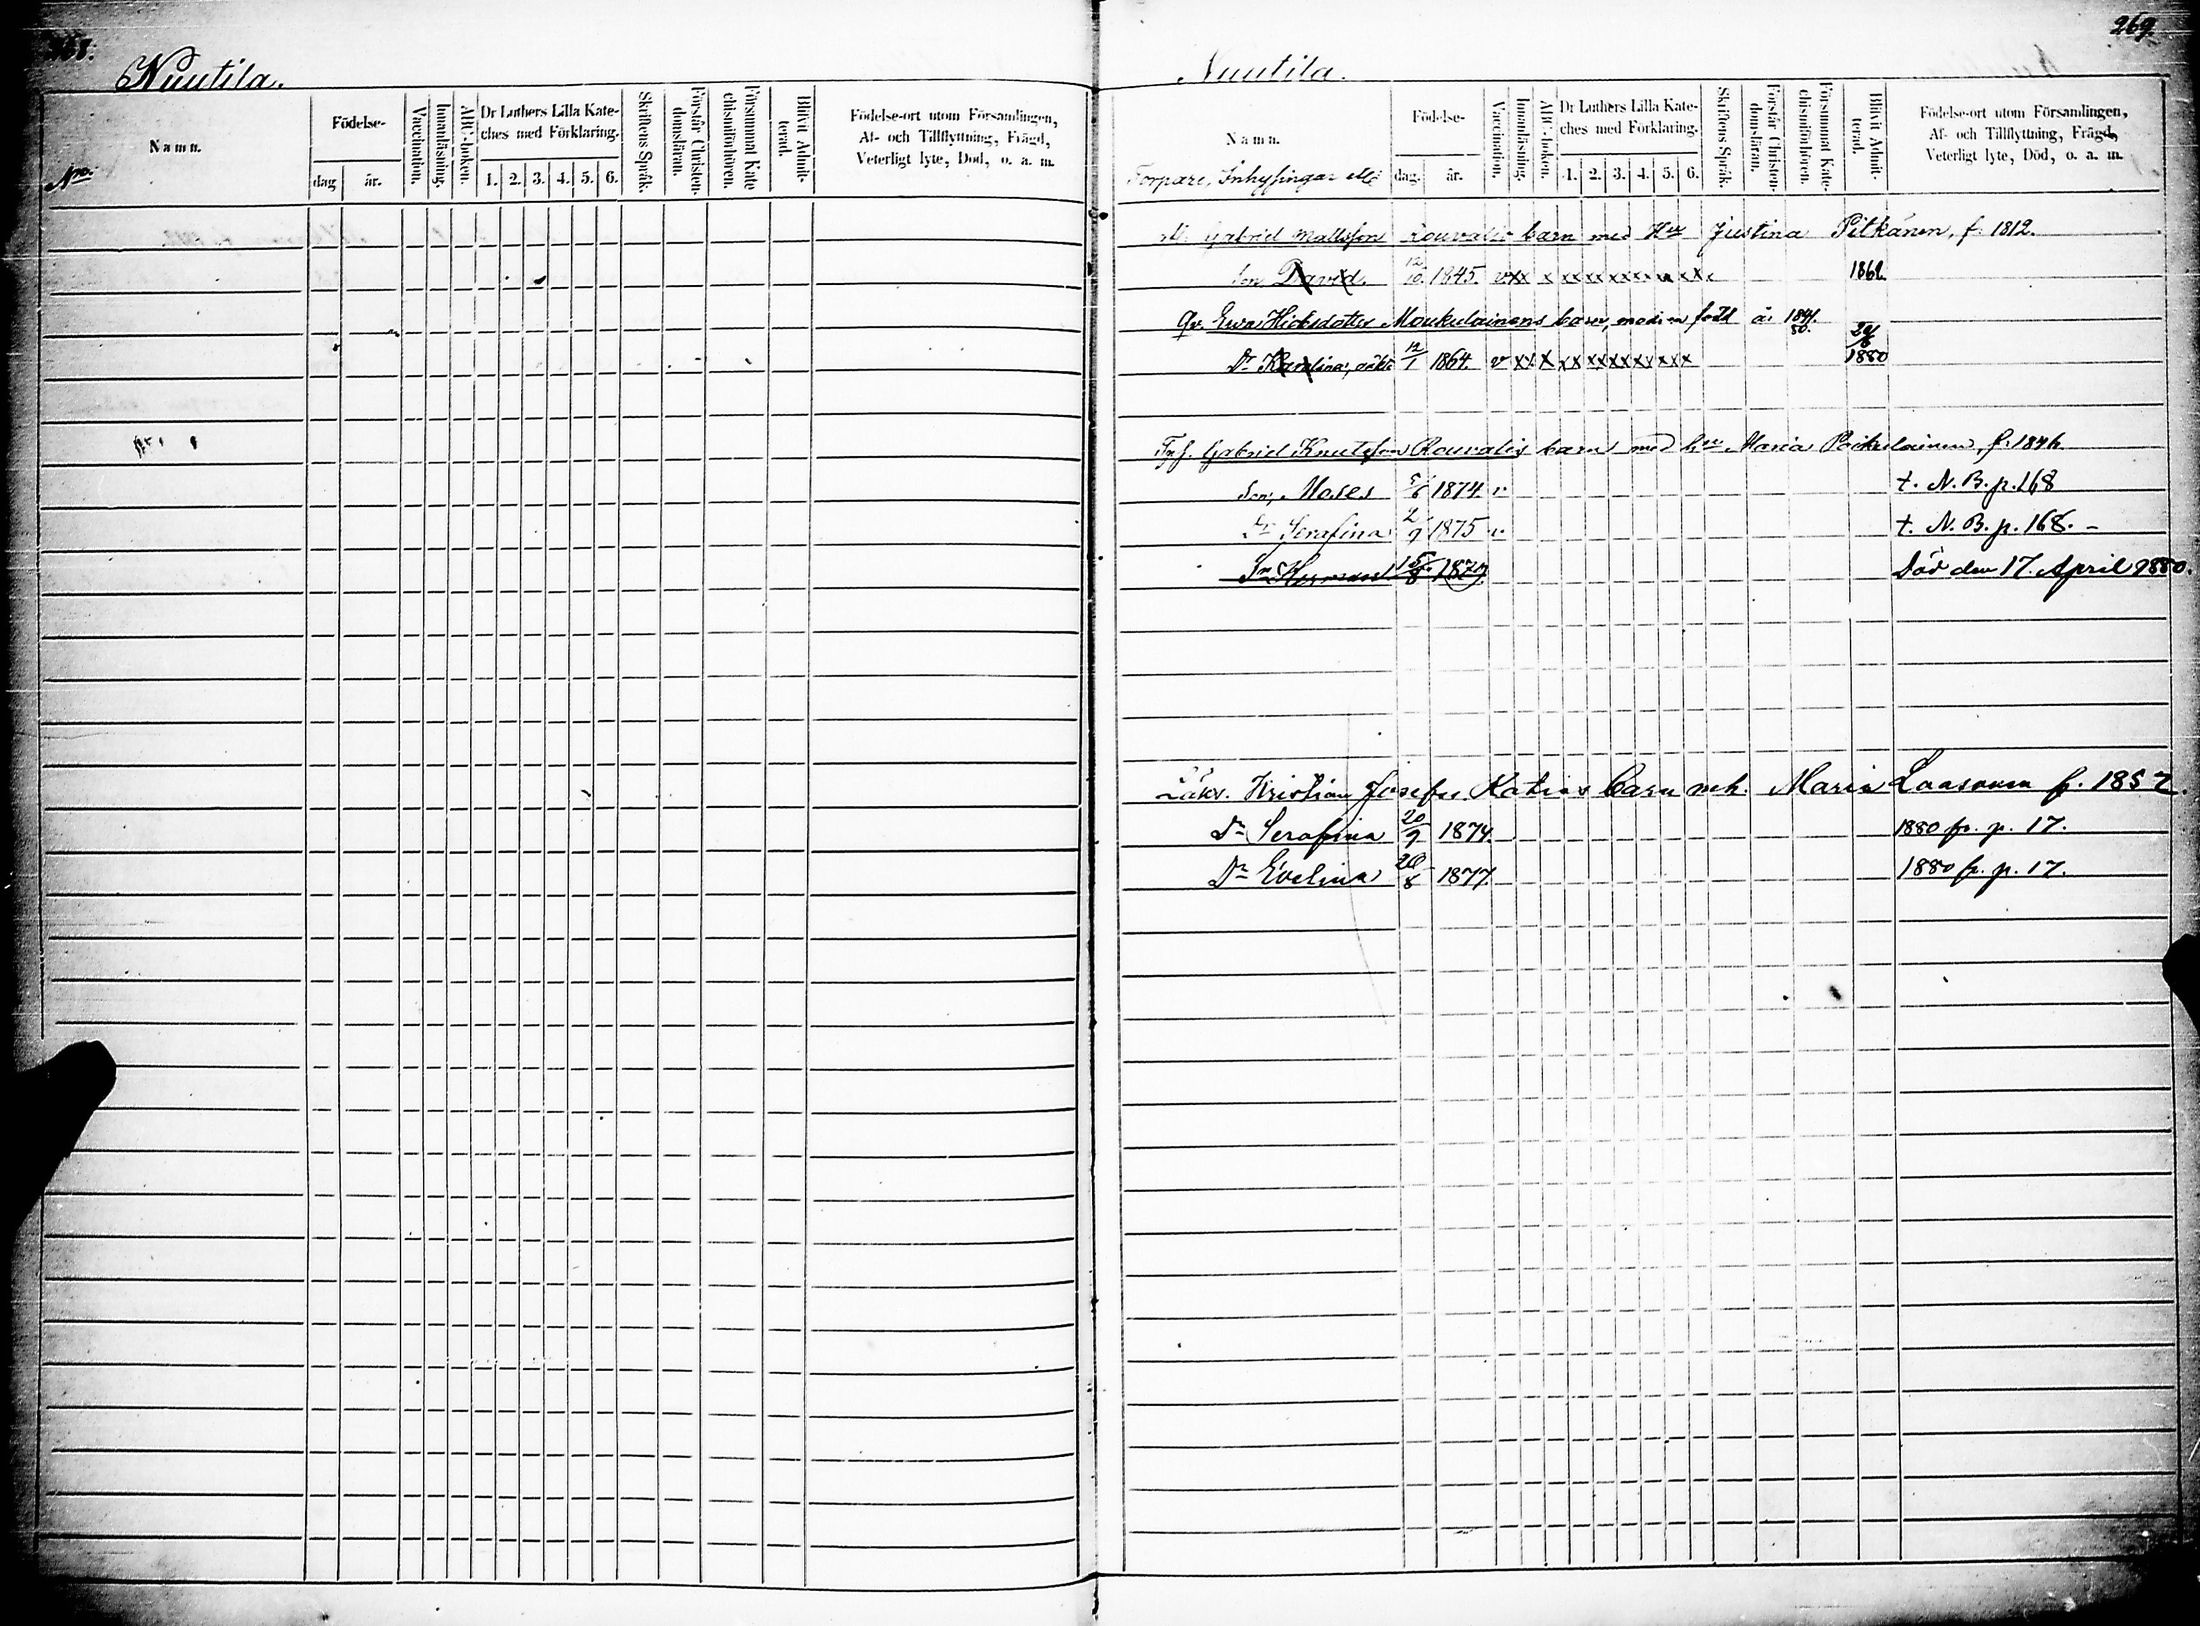 268.
Nuutila.
Nro.
Namn.
Födelse-
dag
år.
Vaccination.
Innanläsning.
ABC-boken.
Dr Luthers Lilla Kate-
ches med Förklaring.
1. 2. 3. 4. 5. 6.
Skriftens Språk.
Förstår Christen-
domsläran.
Försummat Kate
chismiförhören.
Blivit Admit-
terad.
Födelse-ort utom Församlingen,
Af- och Tillflyttning, Frägd,
Veterligt lyte, Död, o. a. m.
269.
Nuutila.
Namn.
Torpare, Inhysingar
Födelse-
dag.
år.
Vaccination.
Innanläsning.
ABC-boken.
Dr Luthers Lilla Kate-
ches med Förklaring.
1. 2. 3. 4. 5. 6.
Skriftens Språk.
Förstår Christen-
domsläran.
Försummat Kate-
chismiförhören.
Blivit Admit-
terad.
Födelse-ort utom Församlingen,
Af- och Tillflyttning, Frägd,
Veterligt lyte, Död, o. a. m.
Gabriel Mattsson Rouvalis barn med Hu Justina Pitkänen, f. 1812.
Son David. 12/10 1845. v x x x x x x x x x x x 1862.
Qv. Ewa Hicksdotter Moukulainens barn, modren född år 1841.
80.
Dr Karolina, oäkta 12/1 1864. v x x x x x x x x x x x 29/6 1880
Gabriel Knutsson Rouvalis barn med hu Maria Poikulainen, f. 1846
Son, Moses 5/6 1874 v t. N. B. p. 168
Dr Serafina 2/9 1875 v t. N. B. p. 168. -
Sn Herman 15/8 1879 Död den 17. April 1880.
Kristian Josefss. Katias barn mh. Maria Laasonen f. 1857.
Dr Serafina 20/9 1874. 1880 fr. p. 17.
Dr Evelina 20/8 1877. 1880 fr. p. 17.